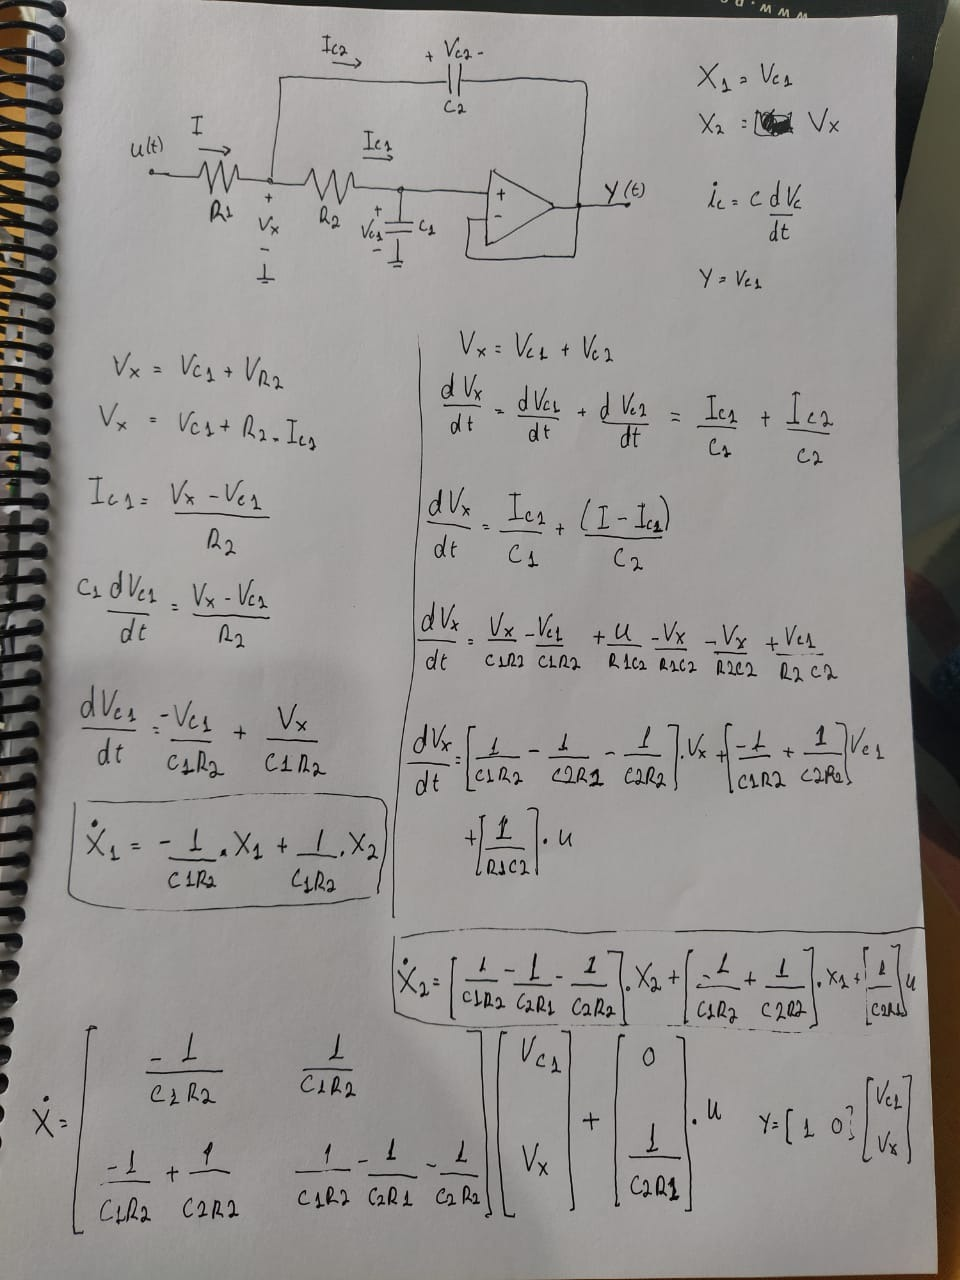 www.p
Ic2
+ Vc2 -
C2
I
u(t)
R1
+
Vx
-
R2
Ic1
+
Vc1
-
C1
+
-
Y(t)
X1 = Vc1
X2 = Vx
ic = C dVc/dt
Y = Vc1
Vx = Vc1 + VR2
Vx = Vc1 + R2 . Ic1
Ic1 = (Vx - Vc1)/R2
C1 dVc1/dt = (Vx - Vc1)/R2
dVc1/dt = -Vc1/C1R2 + Vx/C1R2
Ẋ1 = - 1/C1R2 . X1 + 1/C1R2 . X2
Vx = Vc1 + Vc2
dVx/dt = dVc1/dt + dVc2/dt = Ic1/C1 + Ic2/C2
dVx/dt = Ic1/C1 + (I - Ic1)/C2
dVx/dt = Vx/C1R2 - Vc1/C1R2 + u/R1C2 - Vx/R1C2 - Vx/R2C2 + Vc1/R2C2
dVx/dt = [1/C1R2 - 1/C2R1 - 1/C2R2] . Vx + [-1/C1R2 + 1/C2R2] Vc1
+ [1/R1C2] . u
Ẋ2 = [1/C1R2 - 1/C2R1 - 1/C2R2] . X2 + [-1/C1R2 + 1/C2R2] . X1 + [1/C2R1] u
Ẋ = [-1/C1R2 1/C1R2 ; -1/C1R2 + 1/C2R2 1/C1R2 - 1/C2R1 - 1/C2R2] [Vc1 ; Vx] + [0 ; 1/C2R1] . u Y = [1 0] [Vc1 ; Vx]